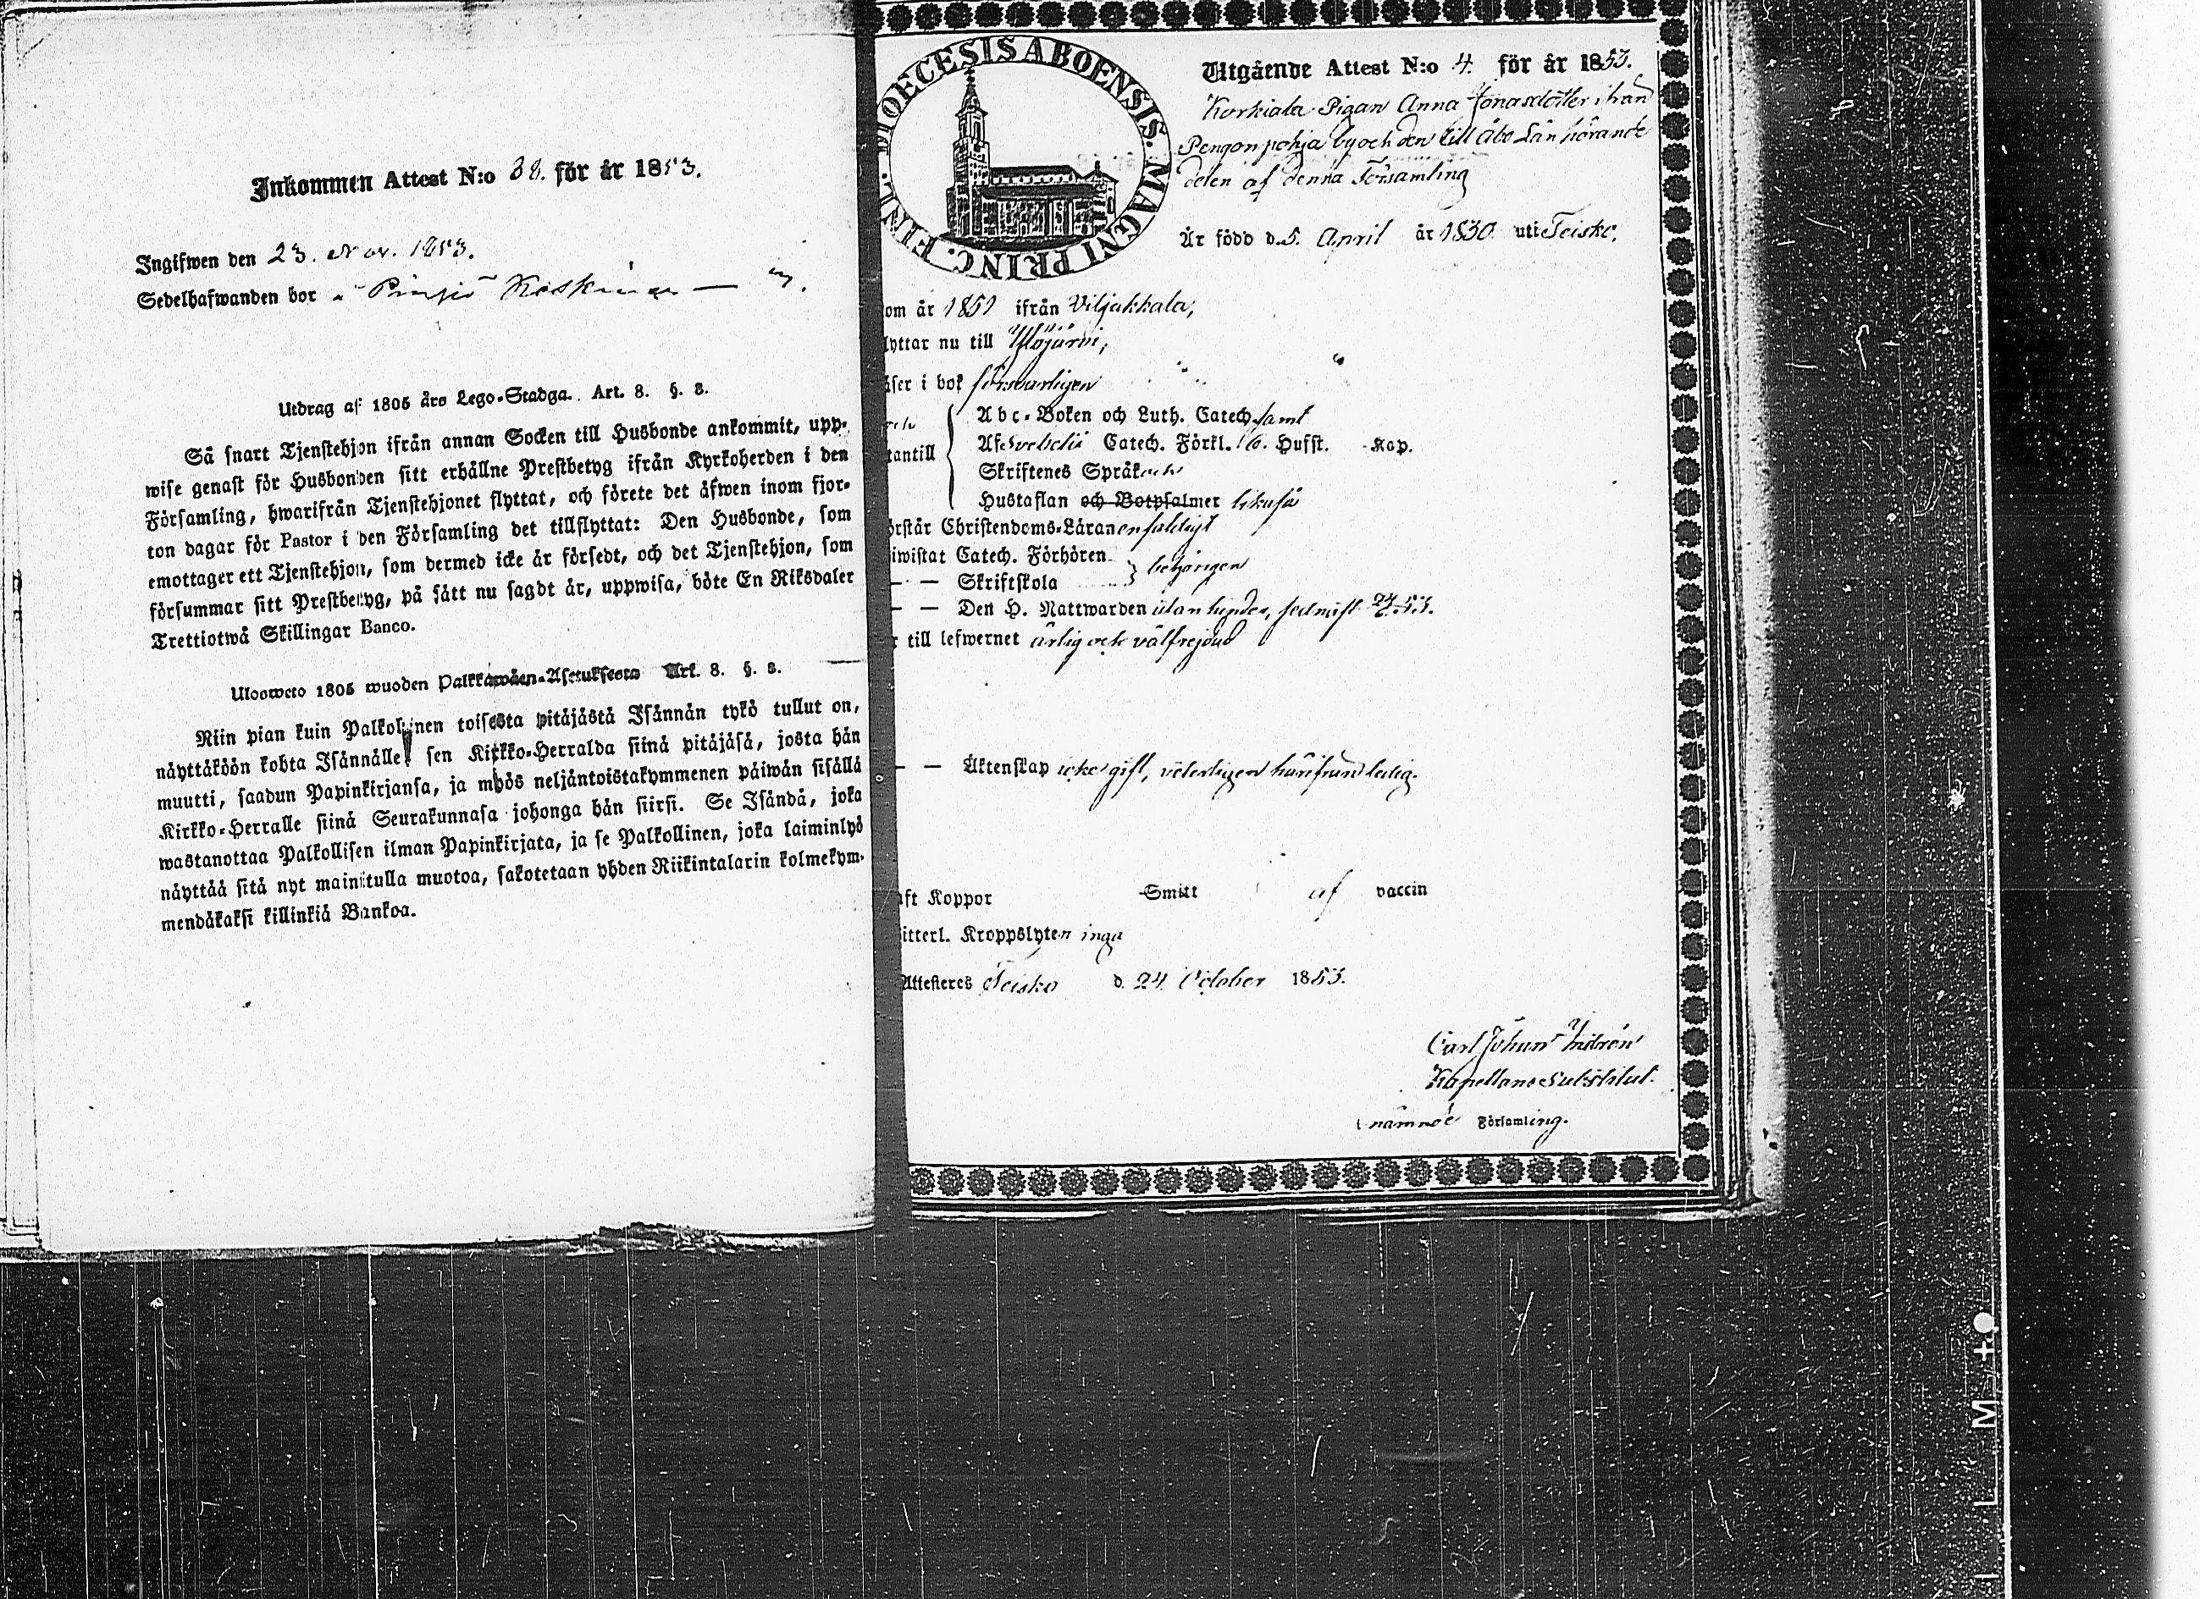 Inkommen Attest N:o 38. för år 1853.
Ingifwen den 23. Nov. 1853.
Sedelhafwanden bor
Utdrag af 1805 års Lego-Stadga. Art. 8. §. 8.
Så snart Tjenstehjon ifrån annan Socken till Husbonde ankommit, upp-
wise genast för Husbonden sitt erhållne Prestbetyg ifrån Kyrkoherden i den
Församling, hwarifrån Tjenstehjonet flyttat, och förete det äfwen inom fjor-
ton dagar för Pastor i den Församling det tillflyttat: Den Husbonde, som
emottager ett Tjenstehjon, som dermed icke är försedt, och det Tjenstehjon, som
försummar sitt Prestbetyg, på sätt nu sagdt är, uppwisa, böte En Riksdaler
Trettiotwå Skillingar Banco.
Ulosweto 1805 wuoden Palkkawäen-Asetuksesta Art. 8. §. 8.
Niin pian kuin Palkollinen toisesta pitäjästä Isännän tykö tullut on,
näyttäköön kohta Isännälle sen Kirkko-Herralda siinä pitäjäsä, josta hän
muutti, saadun Papinkirjansa, ja myös neljäntoistakymmenen päiwän sisällä
Kirkko-Herralle siinä Seurakunnasa johonga hän siirsi. Se Isändä, joka
wastanottaa Palkollisen ilman Papinkirjata, ja se Palkollinen, joka laiminlyö
näyttää sitä nyt mainitulla muotoa, sakotetaan yhden Riikintalarin kolmekym-
mendäkaksi killinkiä Bankoa.
DIOECESIS ABOENSIS. MAGNI PRINC. FINL.
Utgående Attest N:o 4. för år 1853.
Korkiala Pigan Anna Jonasdotter ifrån
Pengonpohja by och den till Åbo Län hörande
delen af denna Församling
Är född d. 5. April år 1830 uti Teisko.
om år 1851 ifrån Viljakkala,
lyttar nu till Ylöjärvi,
äser i bok försvarligen
Abc-Boken och Luth. Catech. samt
tantill Af Svebelii Catech. Förkl. Hufst. Kap.
Skriftenes Språk och
Hustaflan och Botpsalmer likaså
örstår Christendoms-Läran enfaldigt
iwistat Catech. Förhören
— — Skriftskola } behörigen
— — Den H. Nattwarden utan hinder, sednast 53.
r till lefwernet ärlig och välfrejdad
— — Äktenskap icke gift, veterligen härifrån ledig.
aft Koppor Smitt af vaccin
itterl. Kroppslyten inga
Attesteres Teisko d. 24 October 1853.
Carl Johan
Kapellans Substitut.
i nämnde Församling.
M